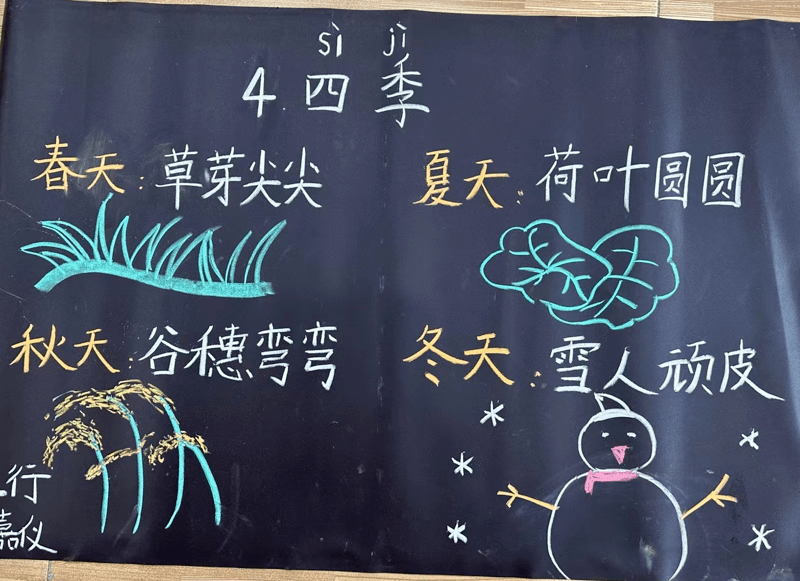 sì jì
4.四季
春天:草芽尖尖
夏天:荷叶圆圆
秋天:谷穗弯弯
冬天:雪人顽皮
行
嘉仪